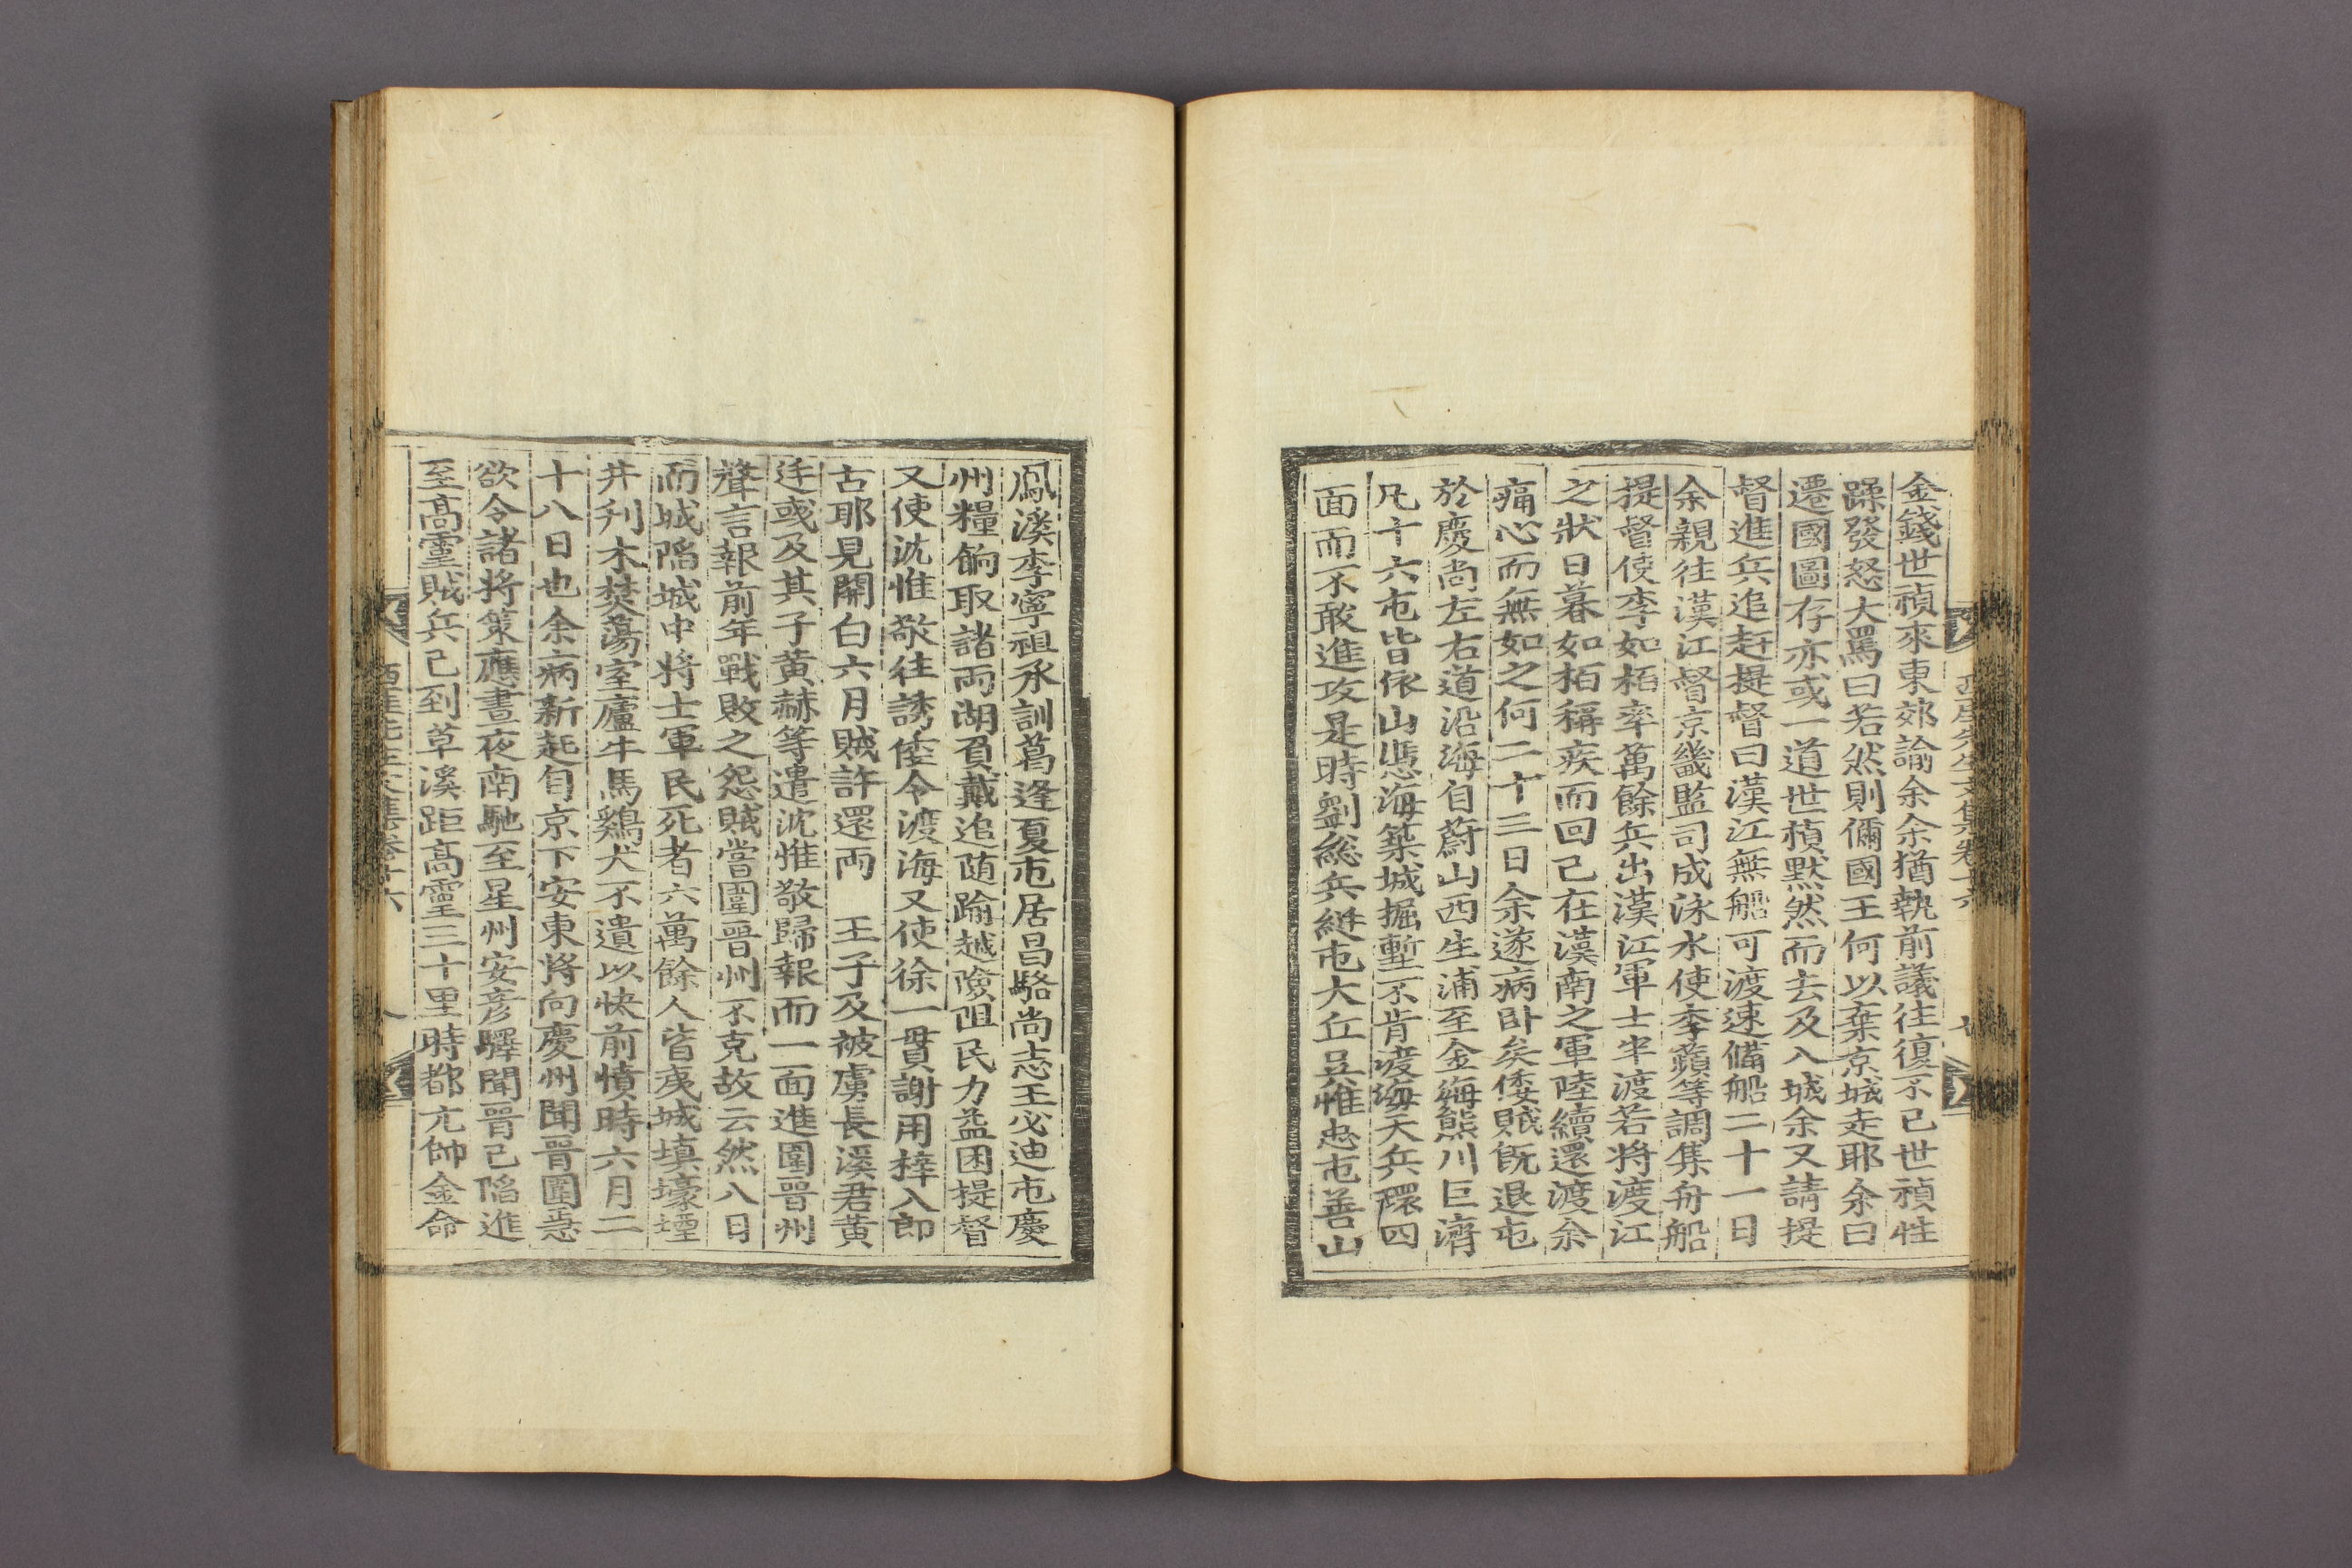 金錢世禎來東郊諭余余猶執前議往復不已世禎性
躁發怒大罵曰若然則儞國王何以棄京城走耶余曰
遷國圖存亦或一道世楨默然而去及入城余又請提
督進兵追赶提督曰漢江無船可渡速備船二十一日
余親往漢江督京畿監司成泳水使李蘋等調集舟船
提督使李如栢率萬餘兵出漢江軍士半渡若將渡江
之狀日暮如栢稱疾而回已在漢南之軍陸續還渡余
痛心而無如之何二十三日余遂病卧矣倭賊旣退屯
於慶尙左右道沿海自蔚山西生浦至金海熊川巨濟
凡十六屯皆依山憑海築城掘塹不肯渡海天兵環四
面而不敢進攻是時劉緫兵綎屯大丘吳惟忠屯善山
鳳溪李寧祖承訓葛逢夏屯居昌駱尙志王必迪屯慶
州糧餉取諸兩湖負戴追随踰越險阻民力益困提督
又使沈惟敬往誘倭令渡海又使徐一貫謝用梓入郎
古耶見關白六月賊許還兩　王子及被虜長溪君黃
廷彧及其子黃赫等遣沈惟敬歸報而一面進圍晉州
聲言報前年戰敗之怨賊嘗圍晉州不克故云然八日
而城陷城中將士軍民死者六萬餘人皆夷城塡壕堙
井刋木焚蕩室廬牛馬鷄犬不遺以快前憤時六月二
十八日也余病新起自京下安東將向慶州聞晉圍急
欲令諸將策應晝夜南馳至星州安彦驛聞晉已陷進
至高靈賊兵已到草溪距高靈三十里時都元帥金命